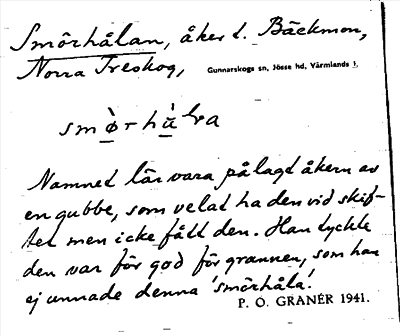 Smörhålan, åker t. Bäckmon,
Norra Treskog,
Gunnarskogs sn, Jösse hd, Värmlands l.
Namnet lär vara pålagt åkern av
en gubbe, som velat ha den vid skif-
tet men icke fått den. Han tyckte
den var för god för grannen, som han
ej unnade denna 'smörhåla'.
P. O. GRANÉR 1941.